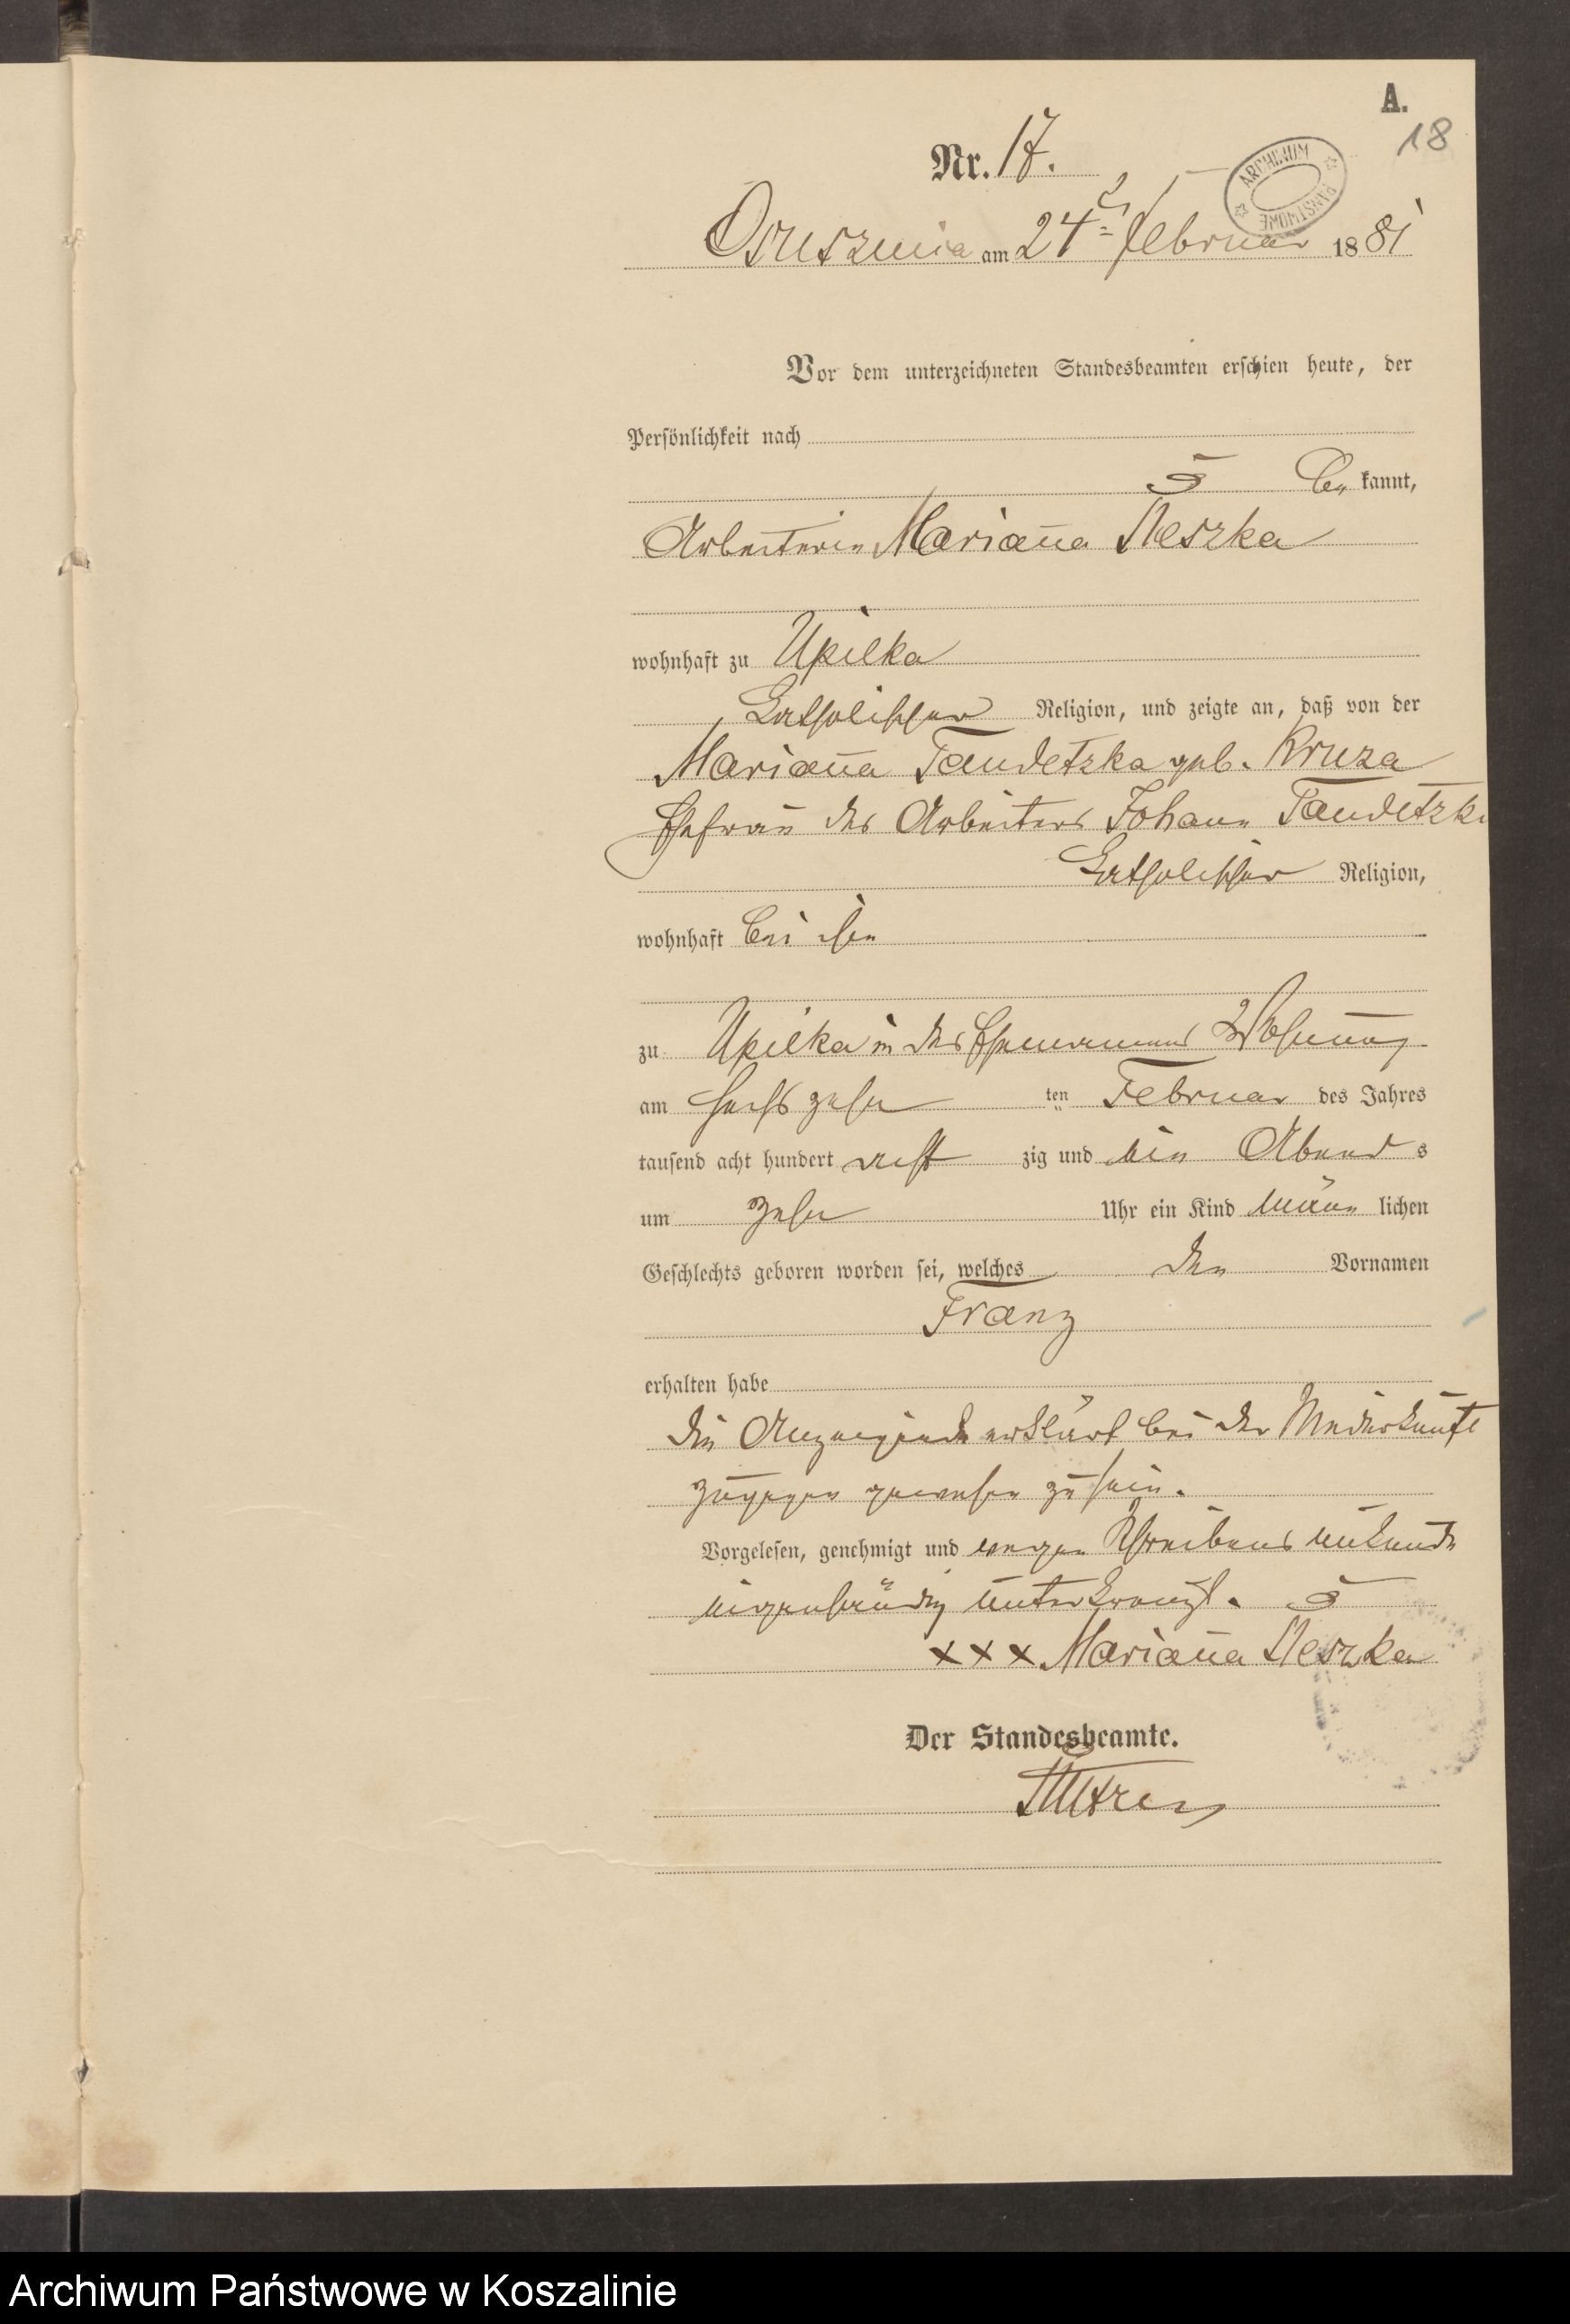 A.
18
Nr. 17.
ARCHIWUM PAŃSTWOWE
Osusznica am 24ten Februar 1881
Vor dem unterzeichneten Standesbeamten erschien heute, der
Persönlichkeit nach
be kannt,
Arbeiterin Marianna
wohnhaft zu Upilka
katholischer Religion, und zeigte an, daß von der
Marianna Tandetzka geb. Kruza
Ehefrau des Arbeiters Johann Tandetzki
katholischer Religion,
wohnhaft bei ihm
zu Upilka in des Ehemannes Wohnung
am sechszehn ten Februar des Jahres
tausend acht hundert acht zig und ein Abend s
um zehn Uhr ein Kind männ lichen
Geschlechts geboren worden sei, welches den Vornamen
Franz
erhalten habe
Die Anzeigende erklärt bei der Niederkunft
zugegen gewesen zu sein.
Vorgelesen, genehmigt und wegen Schreibens unkunde
eigenhändig unterkreuzt.
xxx Marianna
Der Standesbeamte.
Archiwum Państwowe w Koszalinie